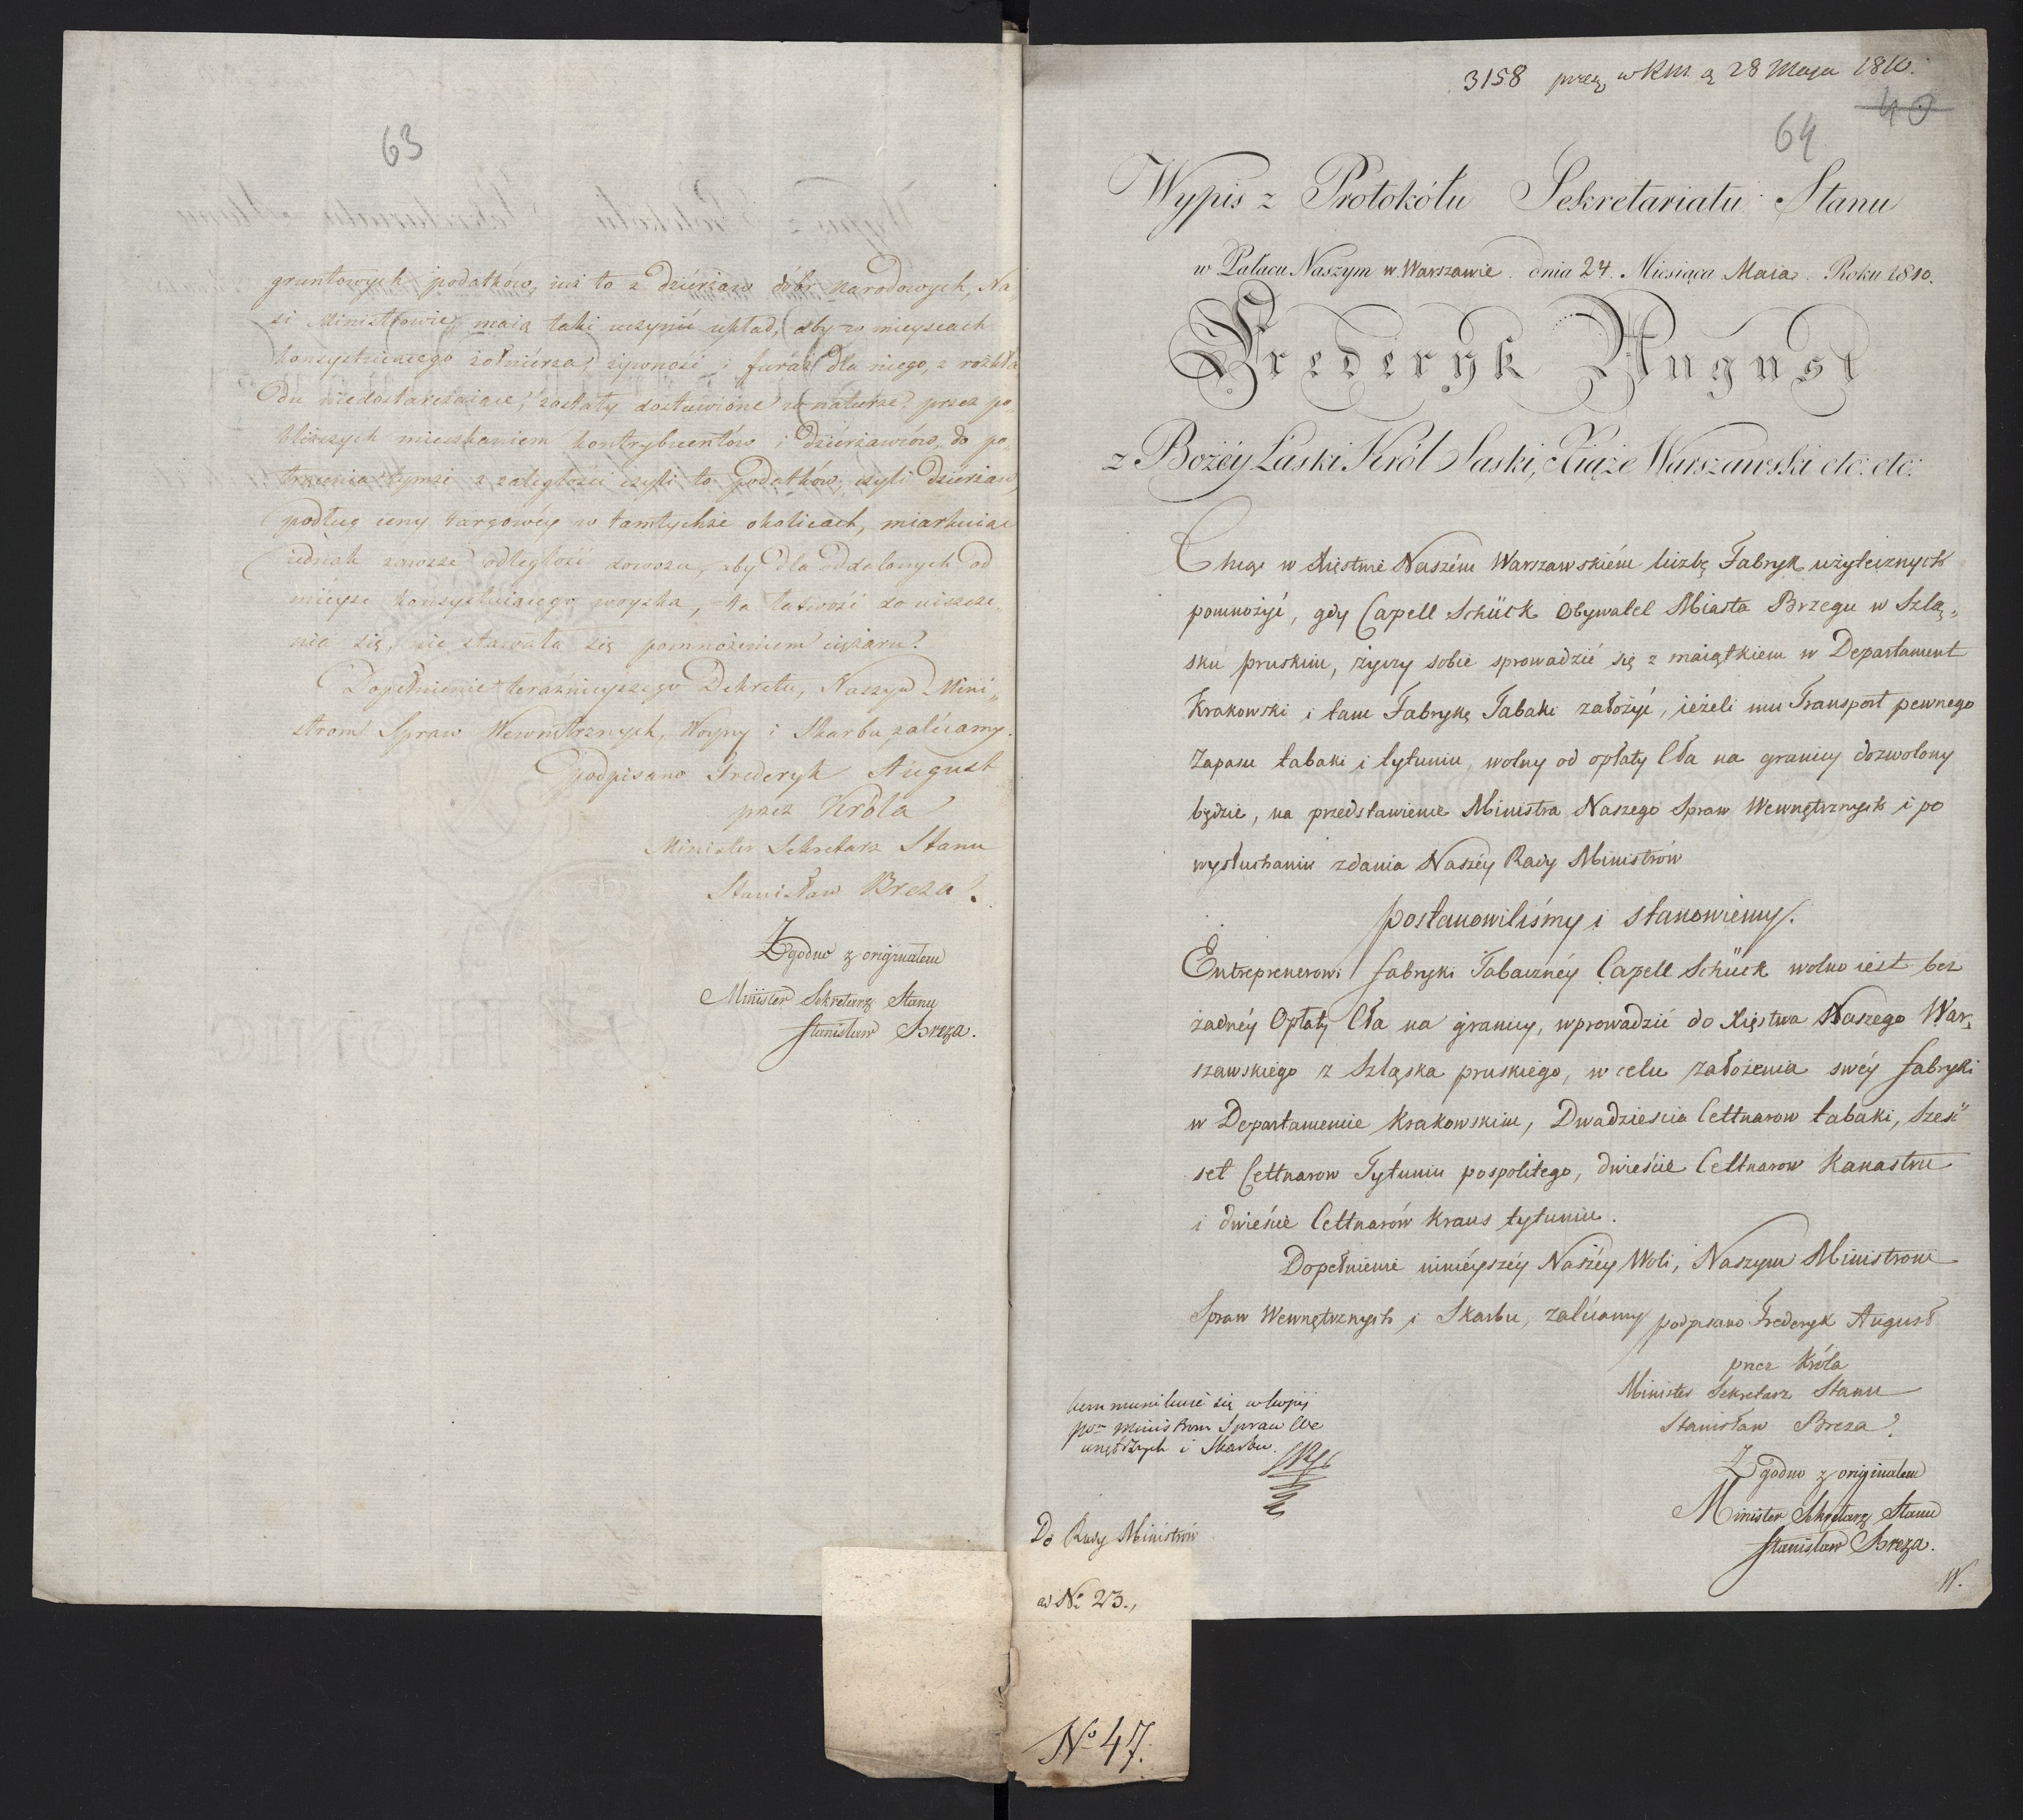 63
gruntowych podatków, iuż to z dzierżaw dóbr narodowych, Na„
si Ministrowie maią taki uczynić układ, aby w mieyscach
konsystuiącego żołnierza, żywność i furaż dla niego, z rozkła„
du niedostarczaiące, zostały dostawione w naturze przez po„
bliższych mieszkaniem kontrybuentów i dzierżawców, do po„
trącenia tymże z zaległości czyli to podatków, czyli dzierżaw,
podług ceny targowéy w tamtychże okolicach, miarkuiąc
iednak zawsze odległość dowozu, aby dla oddalonych od
mieysc konsystuiącego woyska, ta łatwość do uiszcze„
nia się, nie stawała się pomnożeniem ciężaru.
Dopełnienie teraźnieyszego Dekretu, Naszym Mini„
strom Spraw Wewnętrznych, Woyny i Skarbu, zalécamy.
podpisano Frederyk August
przez Króla
Minister Sekretarz Stanu
Stanisław Breza.
Zgodno z originałem
Minister Sekretarz Stanu
Stanisław Breza.
3158 28 Maja 1810.
40
64
Wypis z Protokółu Sekretariatu Stanu
w Pałacu Naszym w Warszawie dnia 24. Miesiąca Maia Roku 1810.
Frederyk August
z Bożéy Łaski Król Saski, Xiąże Warszawski etc: etc:
Chcąc w Xięstwie Naszém Warszawskiém liczbę Fabryk użytecznych
pomnożyć, gdy Capell Schück Obywatel Miasta Brzegu w Szlą„
sku pruskim, życzy sobie sprowadzić się z maiątkiem w Departament
Krakowski i tam Fabrykę Tabaki założyć, ieżeli mu Transport pewnego
Zapasu tabaki i tytuniu, wolny od opłaty Cła na granicy dozwolony
będzie, na przedstawienie Ministra Naszego Spraw Wewnętrznych i po
wysłuchaniu zdania Naszéy Rady Ministrów
postanowiliśmy i stanowiemy.
Entreprenerowi fabryki Tabaczney Capell Schück wolno iest bez
żadnéy Opłaty Cła na granicy, wprowadzić do Xięstwa Naszego War„
szawskiego z Szląska pruskiego, w celu założenia swéy fabryki
w Departamencie Krakowskim, Dwadzieścia Cettnarow tabaki, Sześć
set Cettnarow Tytuniu pospolitego, dwieście Cettnarow Kanastru
i dwieście Cettnarów Kraus tytuniu.
Dopełnienie ninieyszéy Naszéy Woli, Naszym Ministrom
Spraw Wewnętrznych i Skarbu, zalécamy podpisano Frederyk August
przez Króla
Minister Sekretarz Stanu
Stanisław Breza.
Zgodno z originałem
Minister Sekretarz Stanu
Stanisław Breza.
W.
kommunikuie się w kopij
Ministrom Spraw We
wnętrznych i Skarbu.
Do Rady Ministrów
ad No 23.,
No 47.